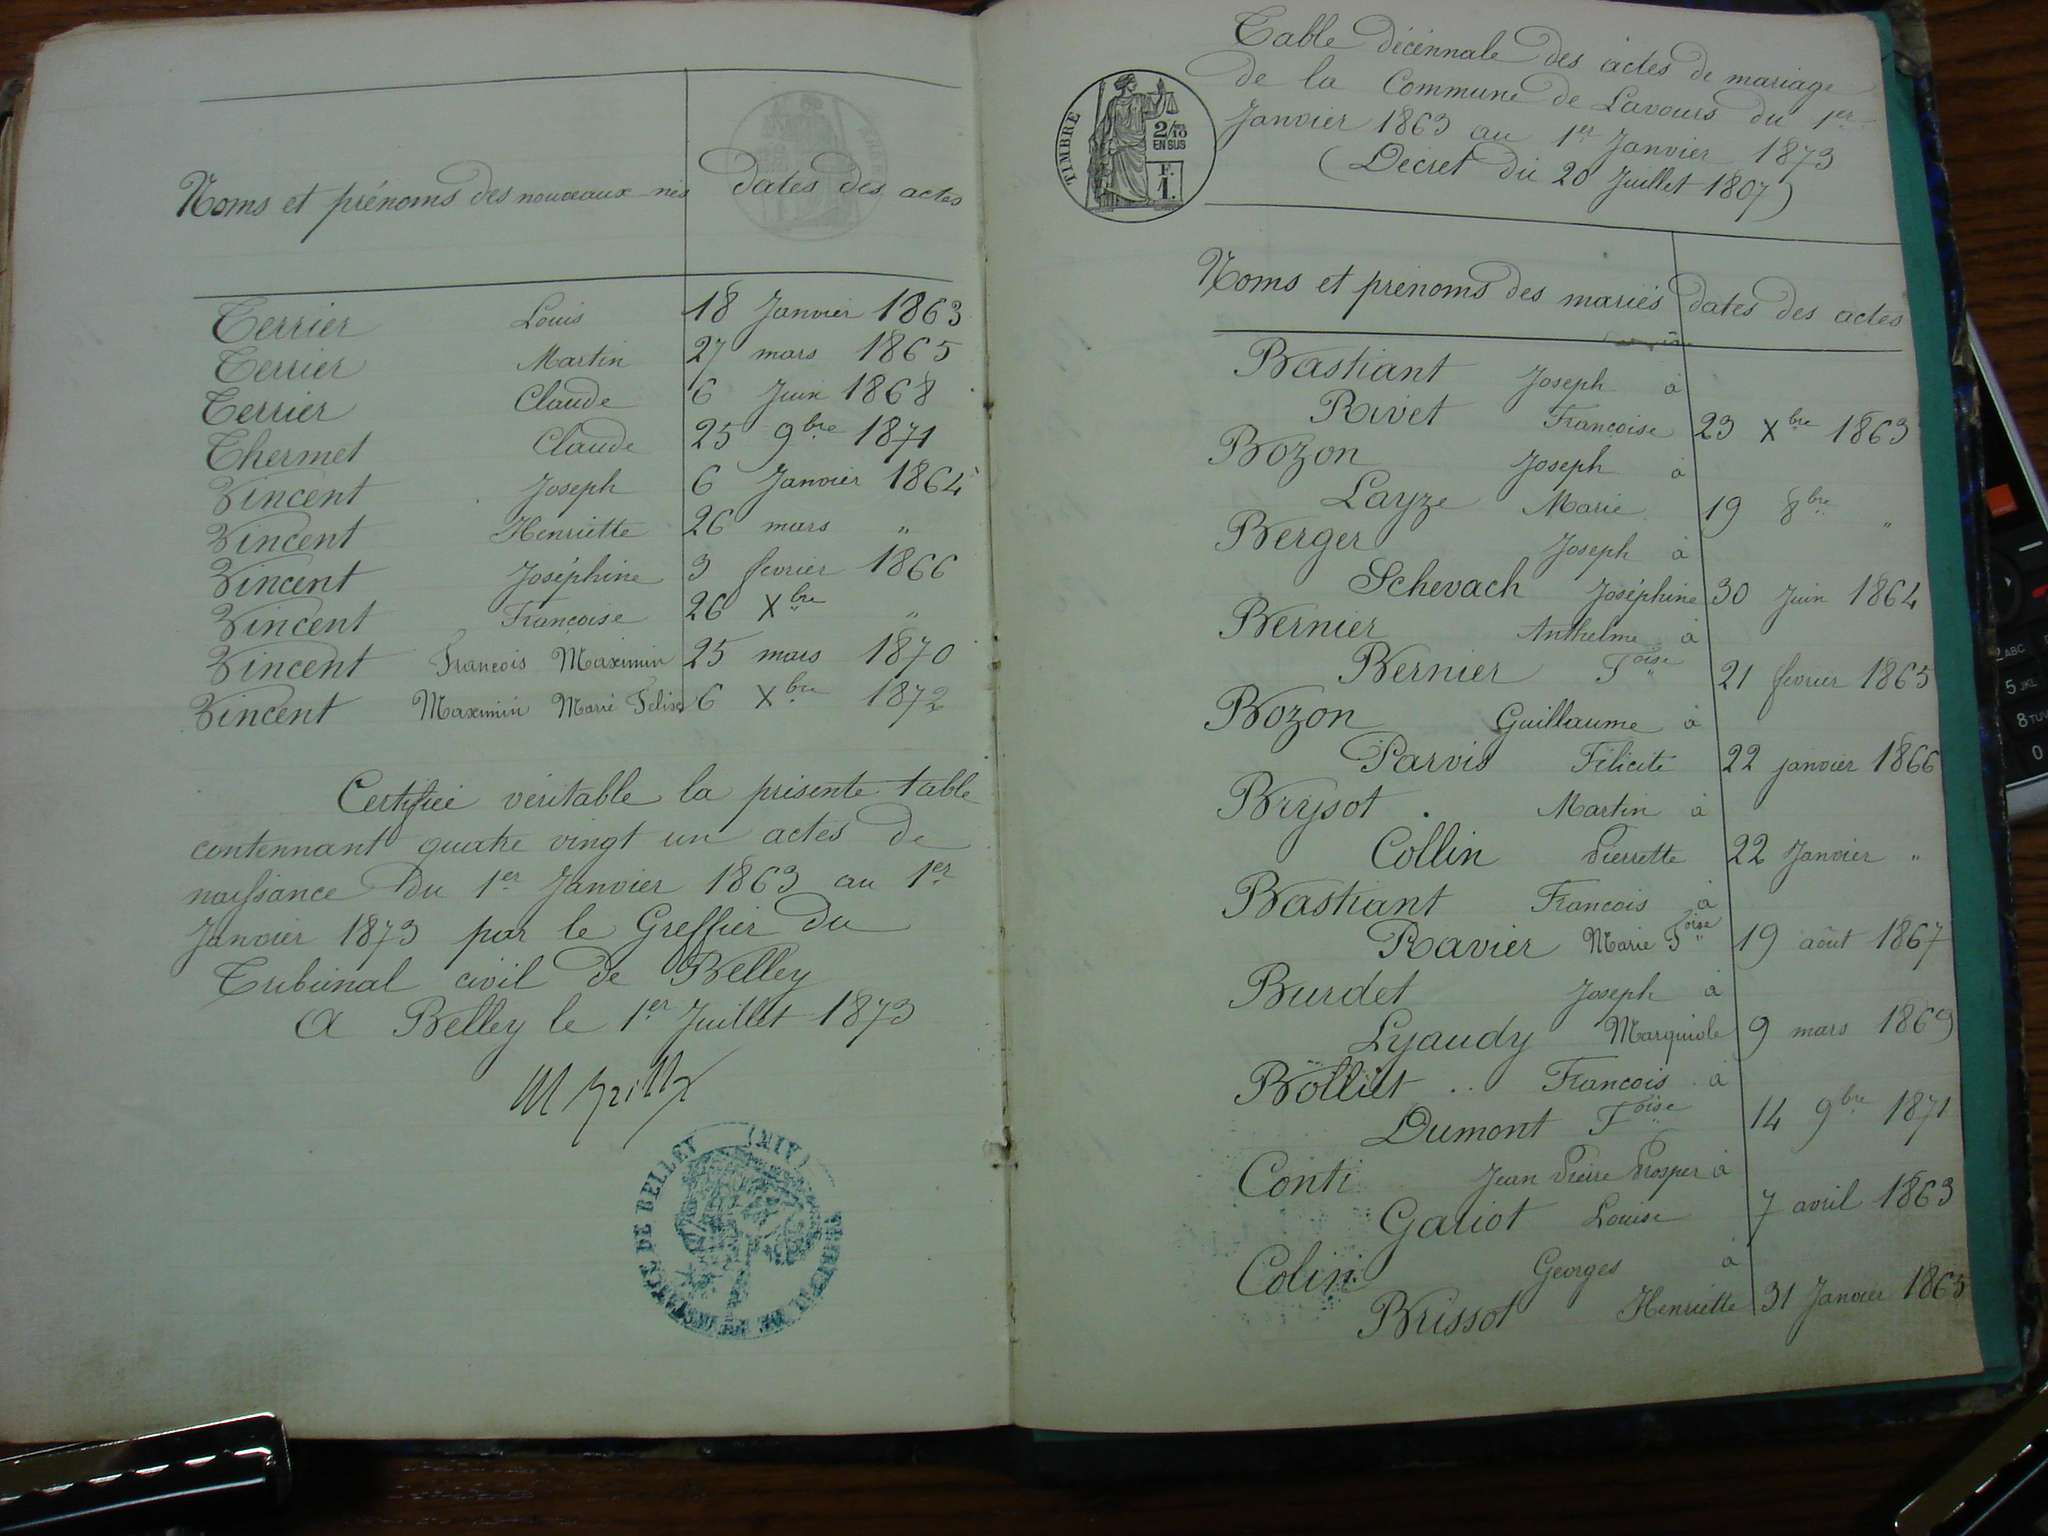 Noms et prénoms des nouveaux nés dates des actes
Terrier Louis 18 Janvier 1863
Terrier Martin 27 mars 1865
Terrier Claude 6 Juin 1868
Thermet Claude 25 9bre 1871
Vincent Joseph 6 Janvier 1864
Vincent Henriette 26 mars "
Vincent Joséphine 3 fevrier 1866
Vincent Françoise 26 Xbre "
Vincent François Maximin 25 mars 1870
Vincent Maximin Marie Félix 6 Xbre 1872
Certifiée véritable la présente table
contennant quatre vingt un actes de
naissance du 1er Janvier 1863 au 1er
Janvier 1873 par le Greffier du
Tribunal civil de Belley
A Belley le 1er Juillet 1873
DE BELLEY (AIN)
Table décennale des actes de mariage
de la Commune de Lavours du 1er
Janvier 1863 au 1er Janvier 1873
(Décret du 20 Juillet 1807)
TIMBRE
2/10
EN SUS
F.
1.
Noms et prénoms des mariés dates des actes
Bastiant Joseph à
Rivet Françoise 23 Xbre 1863
Bozon Joseph à
Layze Marie 19 8bre "
Berger Joseph à
Schevach Joséphine 30 Juin 1864
Bernier Anthelme à
Bernier Foise 21 fevrier 1865
Bozon Guillaume à
Parvis Félicité 22 janvier 1866
Brysot Martin à
Collin Pierrette 22 Janvier "
Bastiant François à
Ravier Marie Foise 19 août 1867
Burdet Joseph à
Lyaudy 9 mars 1869
Bolliet François à
Dumont Foise 14 9bre 1871
Conti Jean Pierre Prosper à
Gariot Louise 7 avril 1863
Colin Georges à
Brissot Henriette 31 Janvier 1865
ABC
5 JKL
8 TUV
0